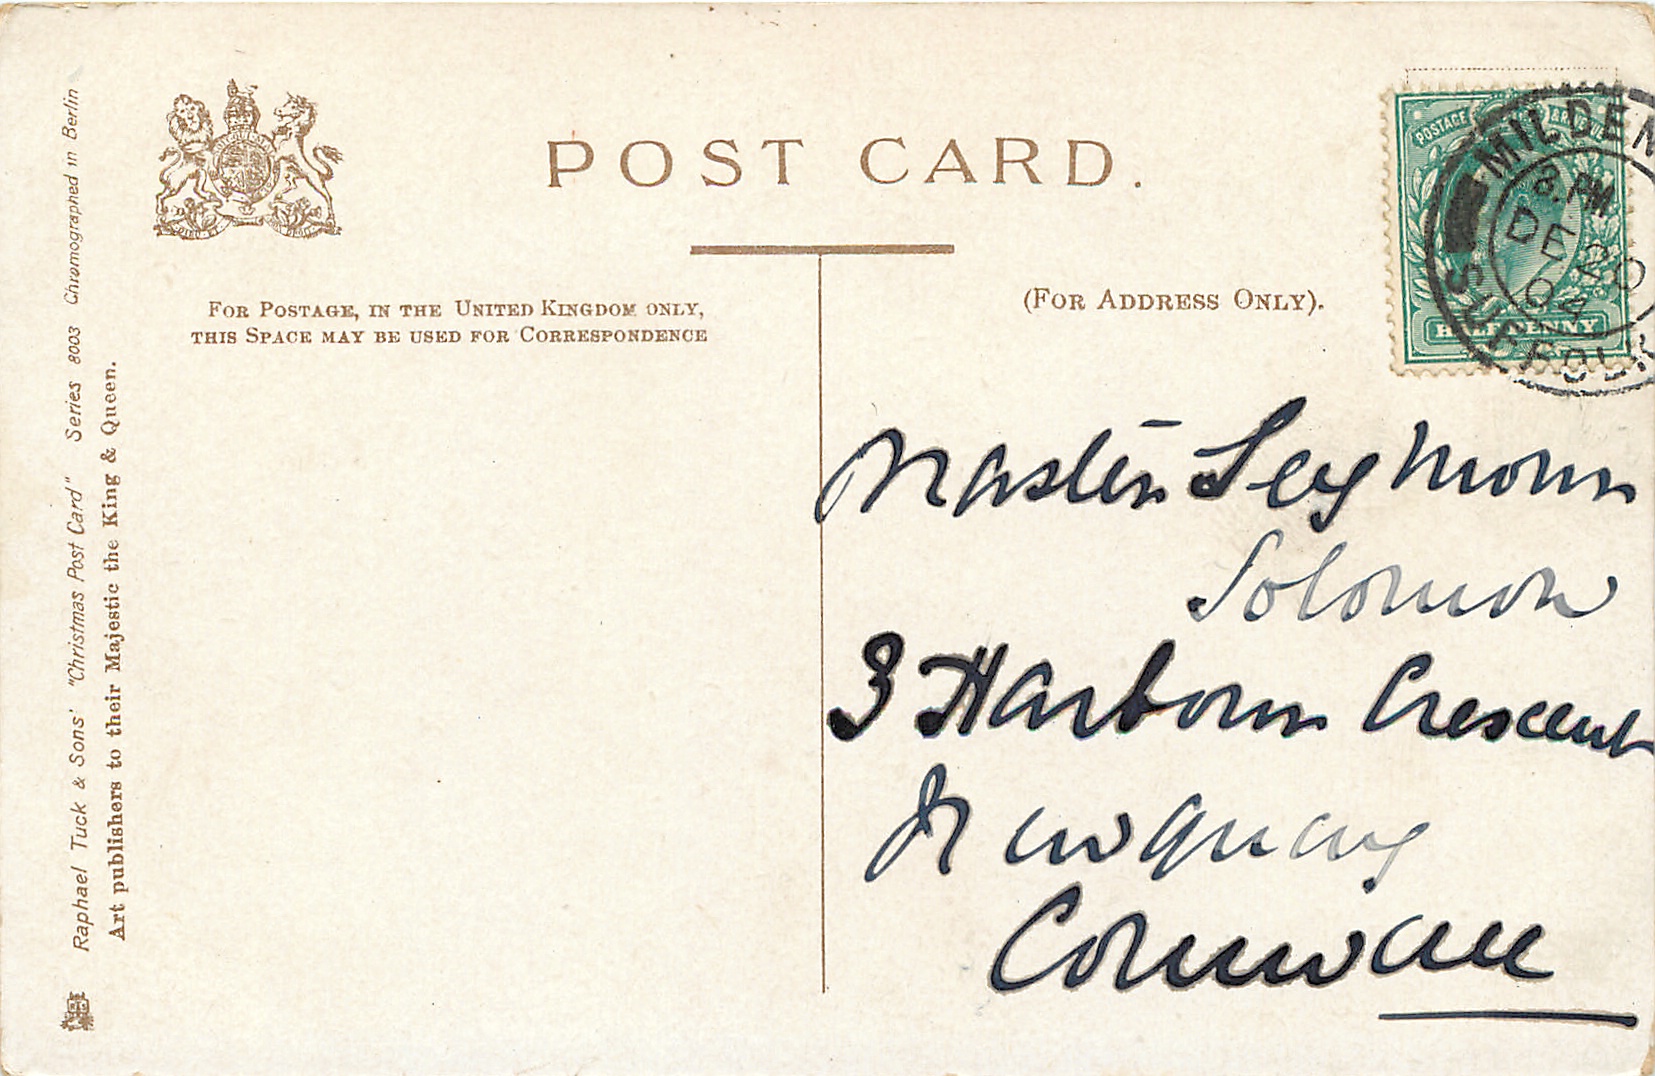 POST CARD.
FOR POSTAGE, IN THE UNITED KINGDOM ONLY,
THIS SPACE MAY BE USED FOR CORRESPONDENCE
(FOR ADDRESS ONLY).
Raphael Tuck & Sons' "Christmas Post Card" Series 8003 Chromographed in Berlin
Art publishers to their Majestic the King & Queen.
POSTAGE & REVENUE
HALFPENNY
MILDEN
8.PM
DE 20
04
SUFFOLK
Master Seymour
Solomon
3 Harbour Crescent
Newquay
Cornwall